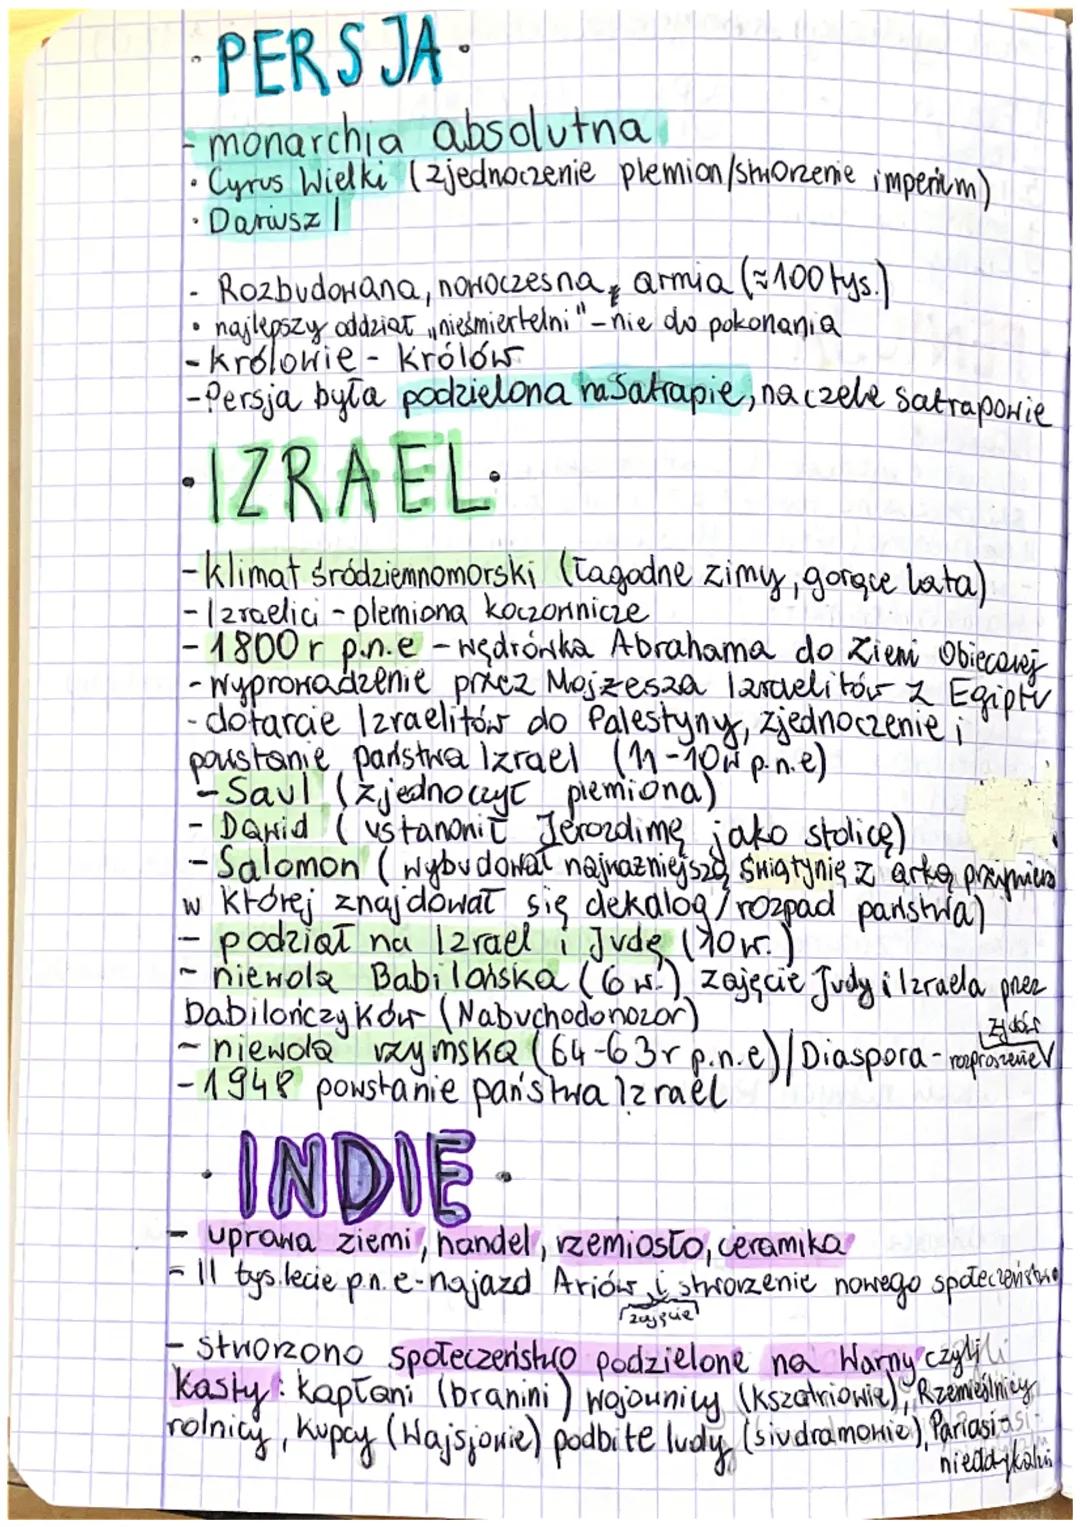 · PERSJA ·
- monarchia absolutna
· Cyrus Wielki (zjednoczenie plemion/stworzenie imperium)
· Dariusz I
- Rozbudowana, nowoczesna, armia (≈100 tys.)
• najlepszy oddział „nieśmiertelni" - nie do pokonania
- królowie - królów
- Persja była podzielona na Satrapie, na czele satrapowie
· IZRAEL ·
- klimat śródziemnomorski (łagodne zimy, gorące lata)
- Izraelici - plemiona koczownicze
- 1800 r p.n.e - wędrówka Abrahama do Ziemi Obiecanej
- wyprowadzenie przez Mojżesza Izraelitów z Egiptu
- dotarcie Izraelitów do Palestyny, zjednoczenie i
powstanie państwa Izrael (11-10w p.n.e)
- Saul (zjednoczył plemiona)
- Dawid (ustanowił Jerozolimę jako stolicę)
- Salomon (wybudował najważniejszą świątynię z arką przymierza
w której znajdował się dekalog/rozpad państwa)
- podział na Izrael i Judę (10w.)
- niewola Babilońska (6w.) zajęcie Judy i Izraela przez
Babilończyków (Nabuchodonozor)
- niewola rzymska (64-63r p.n.e)/Diaspora - rozproszenie Żydów
- 1948 powstanie państwa Izrael
· INDIE ·
- uprawa ziemi, handel, rzemiosło, ceramika
- II tys.lecie p.n.e - najazd Ariów i stworzenie nowego społeczeństwa
zajęcie
- stworzono społeczeństwo podzielone na Warny czyli
kasty: kapłani (branini) wojownicy (kszatriowie), Rzemieślnicy
rolnicy, kupcy (Wajsjowie) podbite ludy (siudramowie), Pariasi
niedotykalni